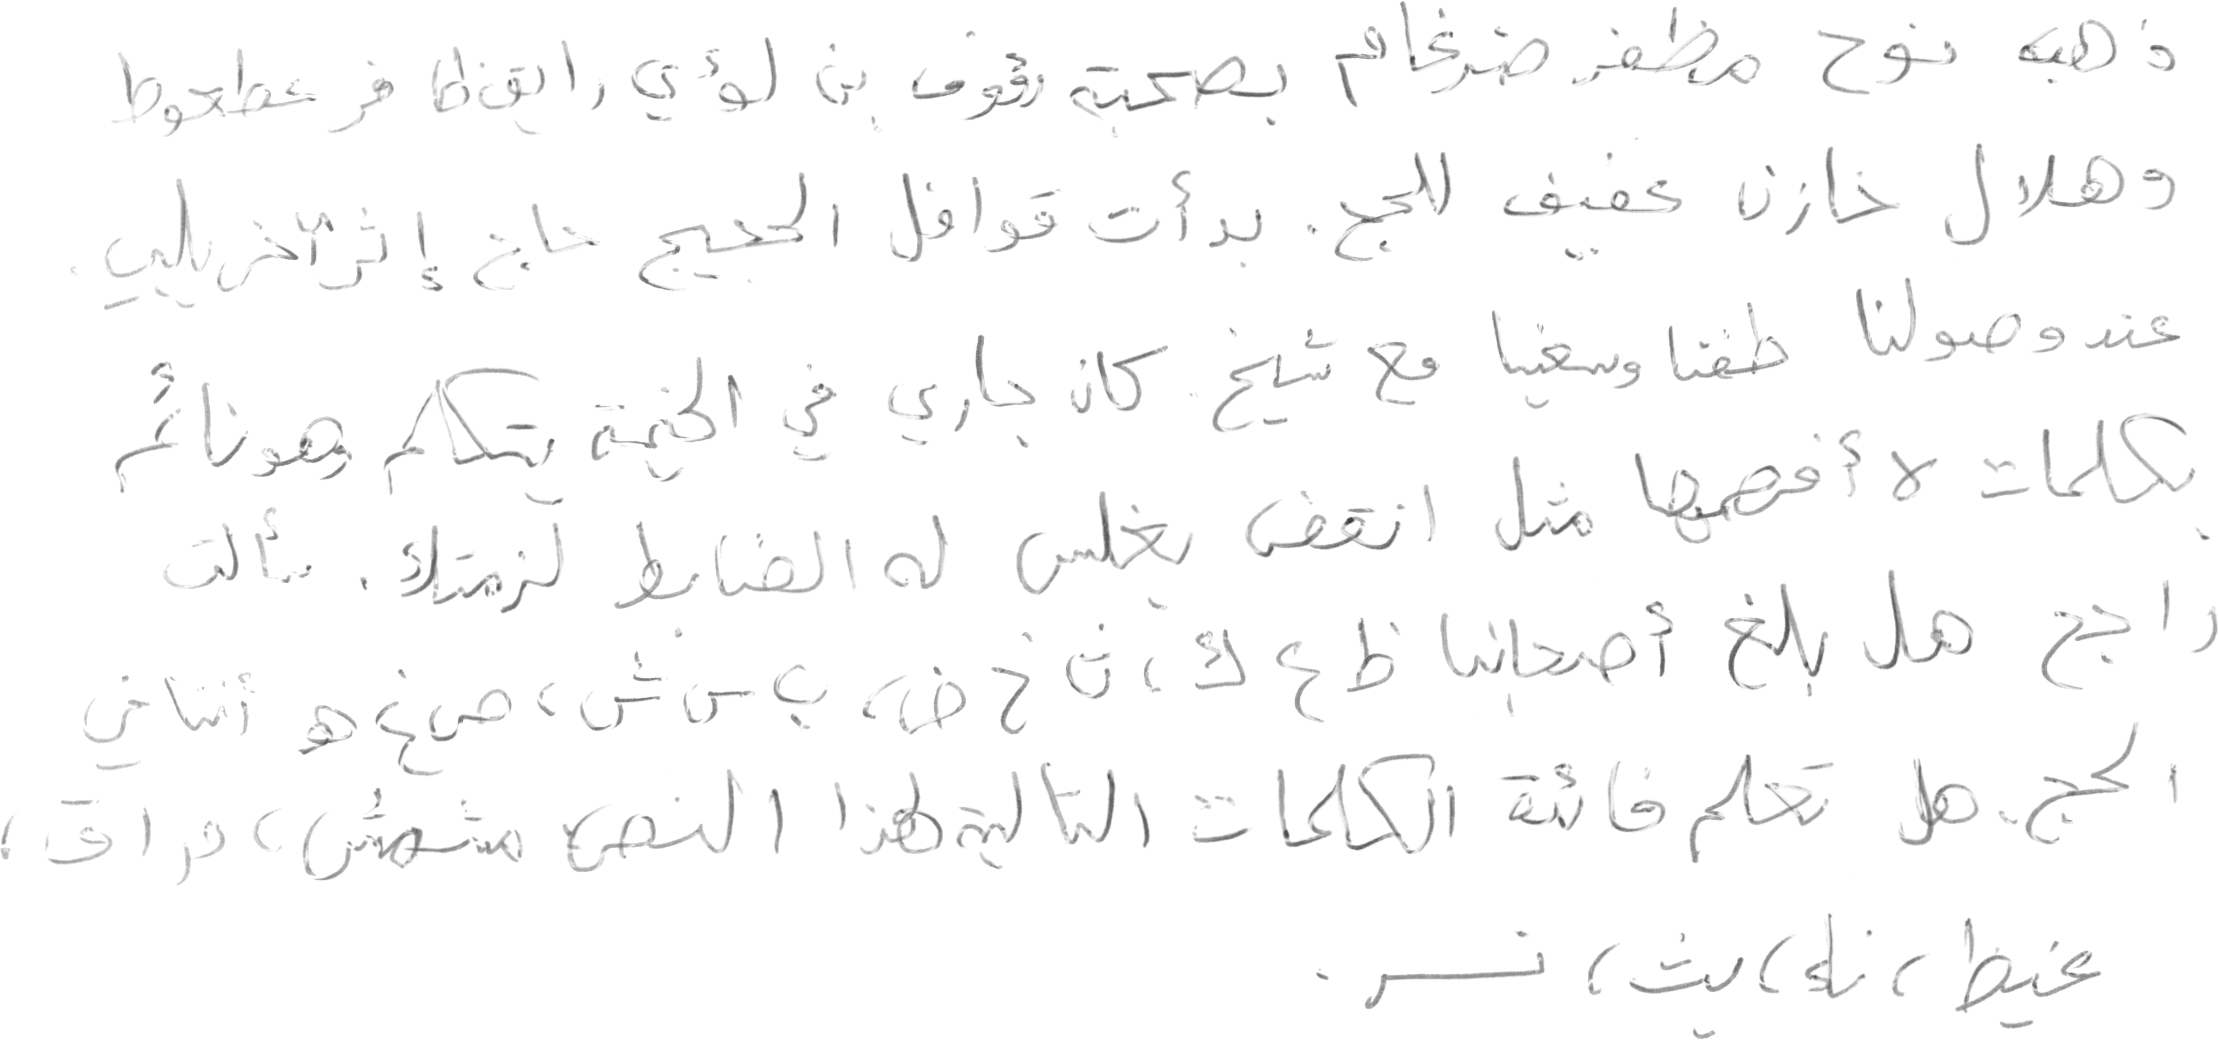 ذهب نوح مظفر ضرغام بصحبة رؤوف بن لؤي رابق ظافر عطعوط
وهلال خازن عفيف للحج. بدأت قوافل الحجيج حاج إثر آخر يلبي.
عند وصولنا طفنا وسعينا مع شيخ. كان جاري في الخيمة يتكلم وهو نائم
بكلمات لا أفهمها مثل انقض بغلس له الضابط لزمتك. سألت
راجح هل بلغ أصحابنا ظ ع ك، ث خ ض، ب س ش، ص غ هـ أننا في
الحج. هل تعلم فائدة الكلمات التالية لهذا النص مشمش، م راق،
غيظ، نك، يث، نسر.